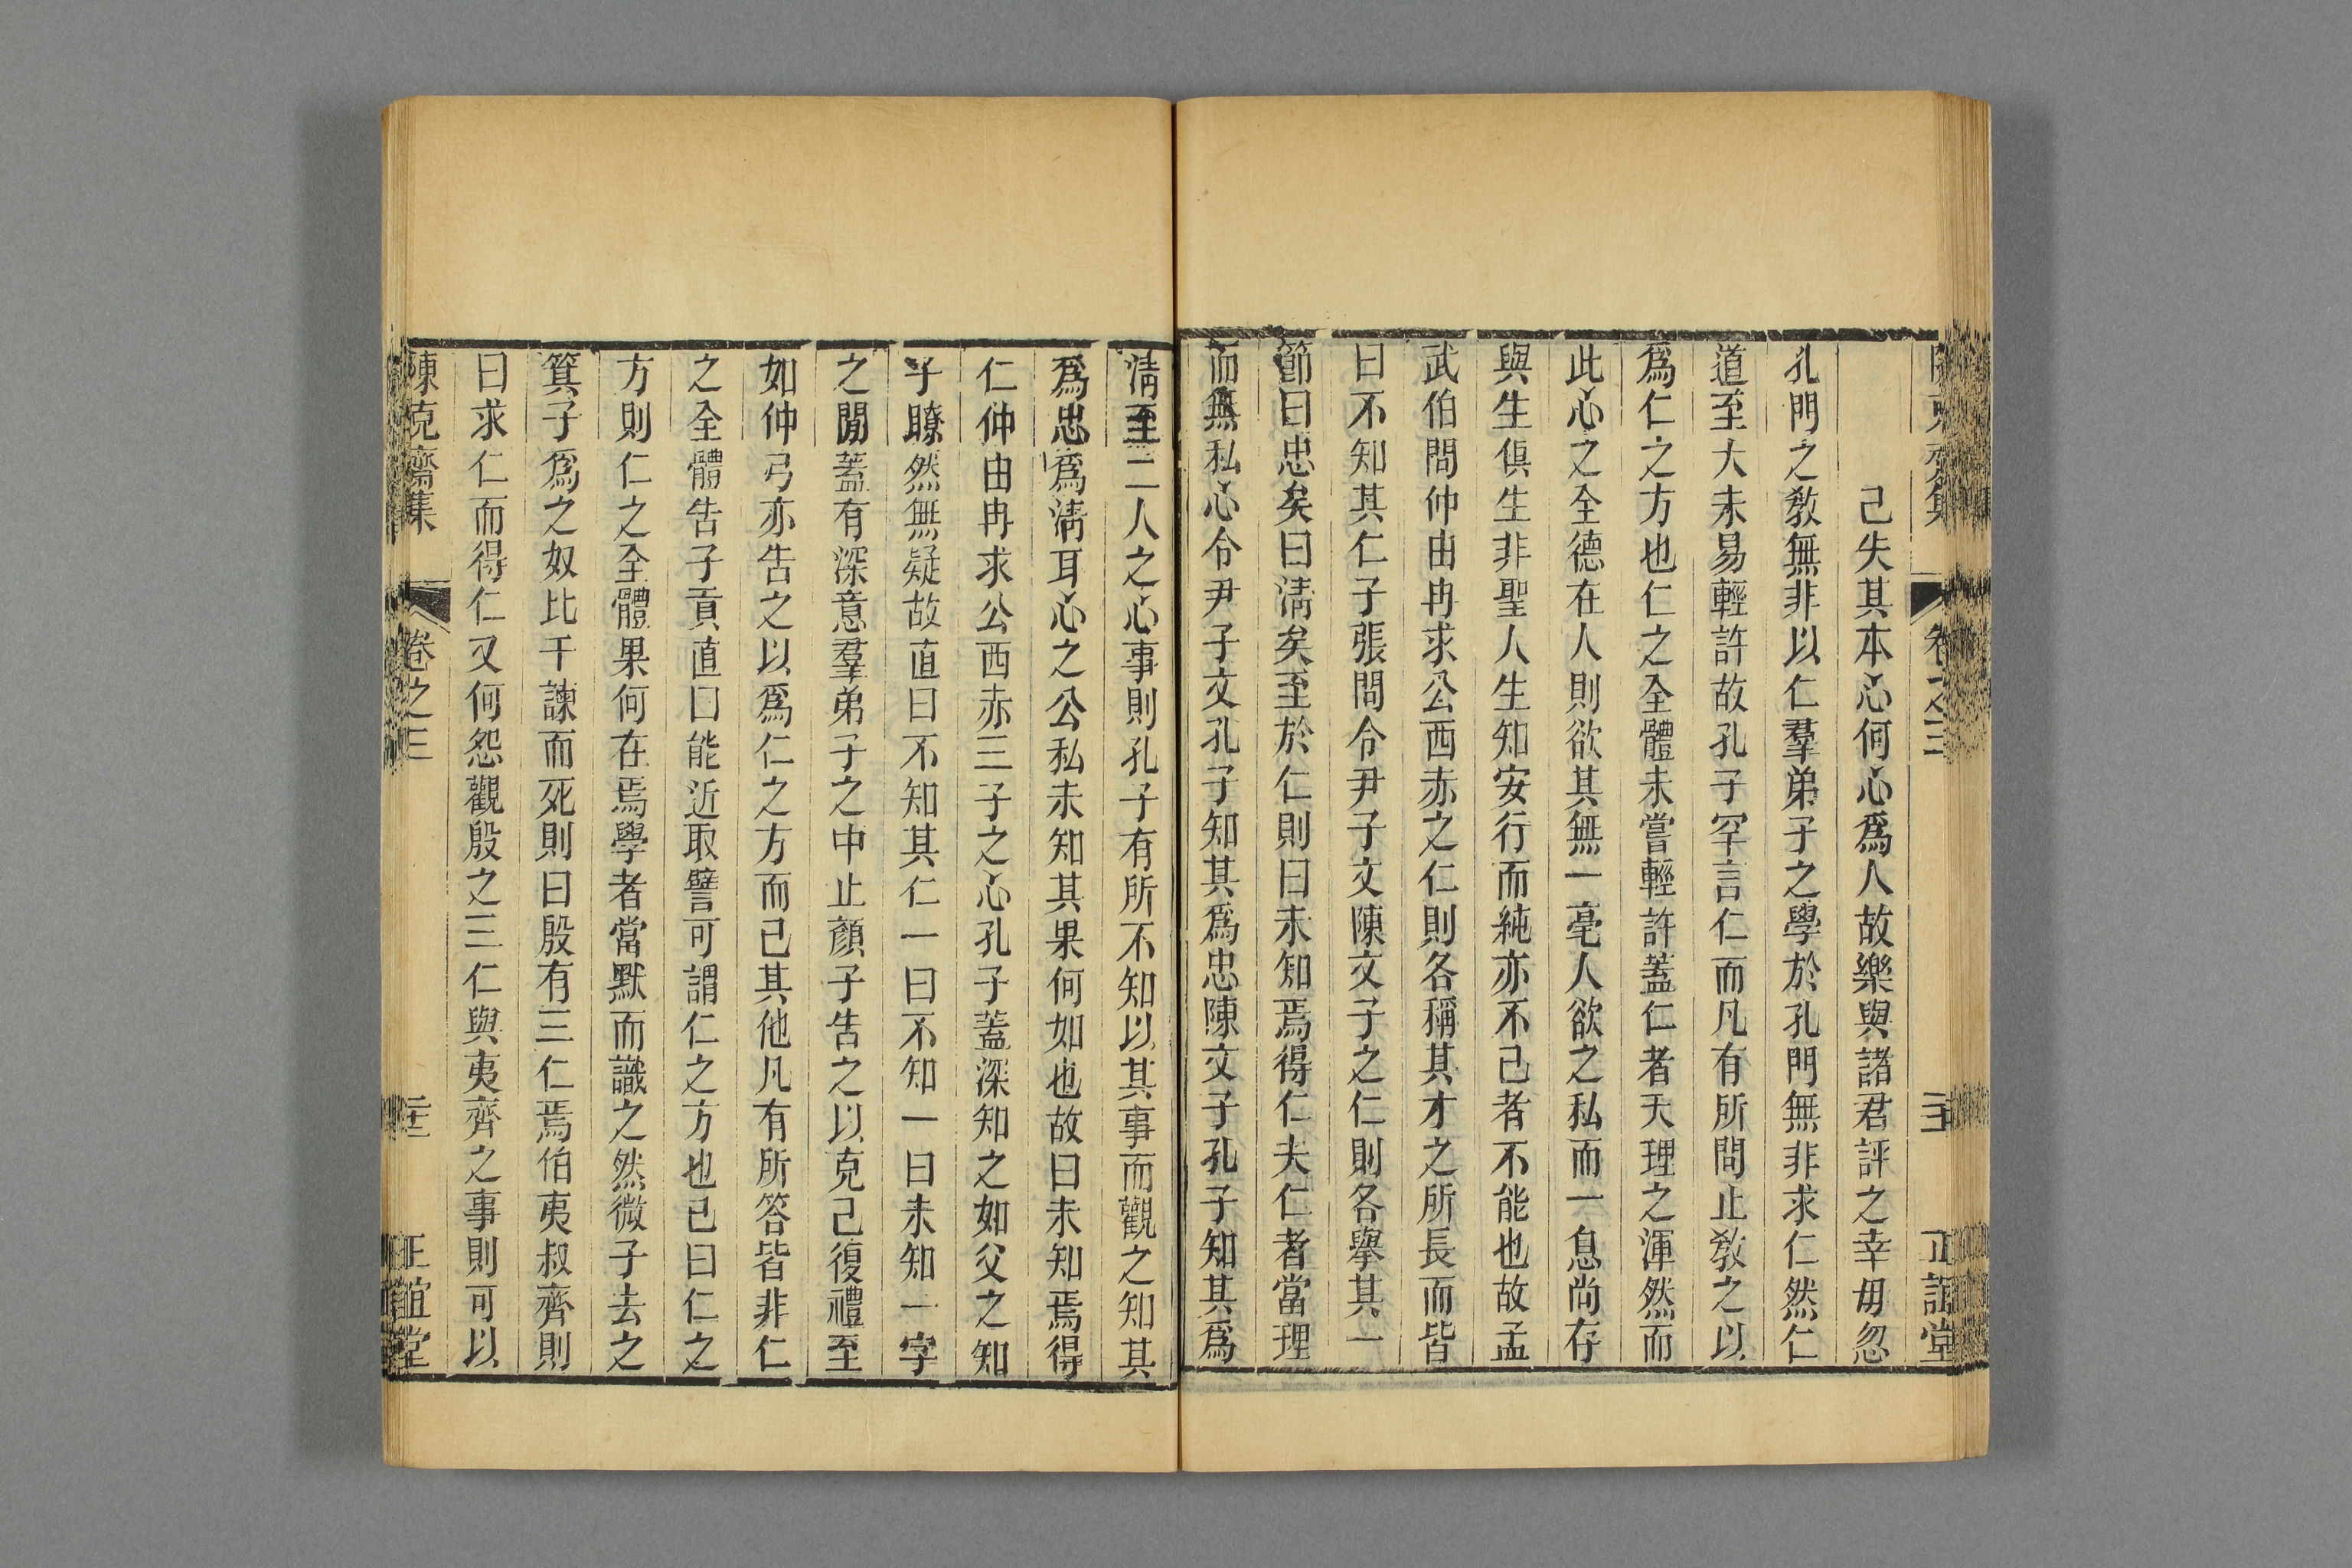 己失其本心何心爲人故樂與諸君評之幸毋忽
孔門之敎無非以仁羣弟子之學於孔門無非求仁然仁
道至大未易輕許故孔子罕言仁而凡有所問止敎之以
爲仁之方也仁之全體未嘗輕許蓋仁者天理之渾然而
此心之全德在人則欲其無一毫人欲之私而一息尚存
與生俱生非聖人生知安行而純亦不已者不能也故孟
武伯問仲由冉求公西赤之仁則各稱其才之所長而皆
曰不知其仁子張問令尹子文陳文子之仁則各舉其一
節曰忠矣曰淸矣至於仁則曰未知焉得仁夫仁者當理
而無私心令尹子文孔子知其爲忠陳文子孔子知其爲
淸至二人之心事則孔子有所不知以其事而觀之知其
爲忠爲淸耳心之公私未知其果何如也故曰未知焉得
仁仲由冉求公西赤三子之心孔子蓋深知之如父之知
子瞭然無疑故直曰不知其仁一曰不知一曰未知一字
之閒蓋有深意羣弟子之中止顏子告之以克己復禮至
如仲弓亦告之以爲仁之方而已其他凡有所答皆非仁
之全體告子貢直曰能近取譬可謂仁之方也已曰仁之
方則仁之全體果何在焉學者當默而識之然微子去之
箕子爲之奴比干諫而死則曰殷有三仁焉伯夷叔齊則
曰求仁而得仁又何怨觀殷之三仁與夷齊之事則可以
陳克齋集 卷之三 正誼堂